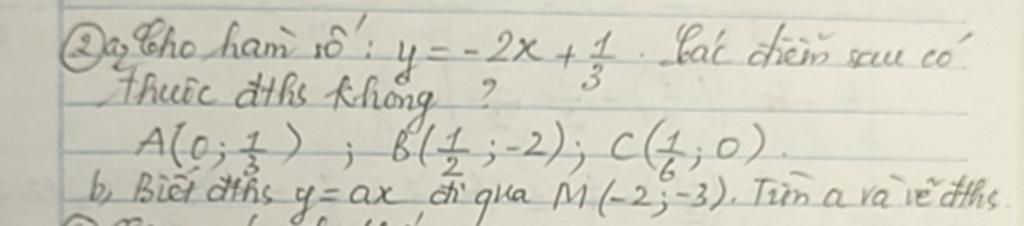 ② a, Cho hàm số: y = -2x + 1/3. Các điểm sau có
thuộc đths không ?
A(0; 1/3) ; B(1/2; -2); C(1/6; 0).
b, Biết đths y = ax đi qua M(-2; -3). Tìm a và vẽ đths.